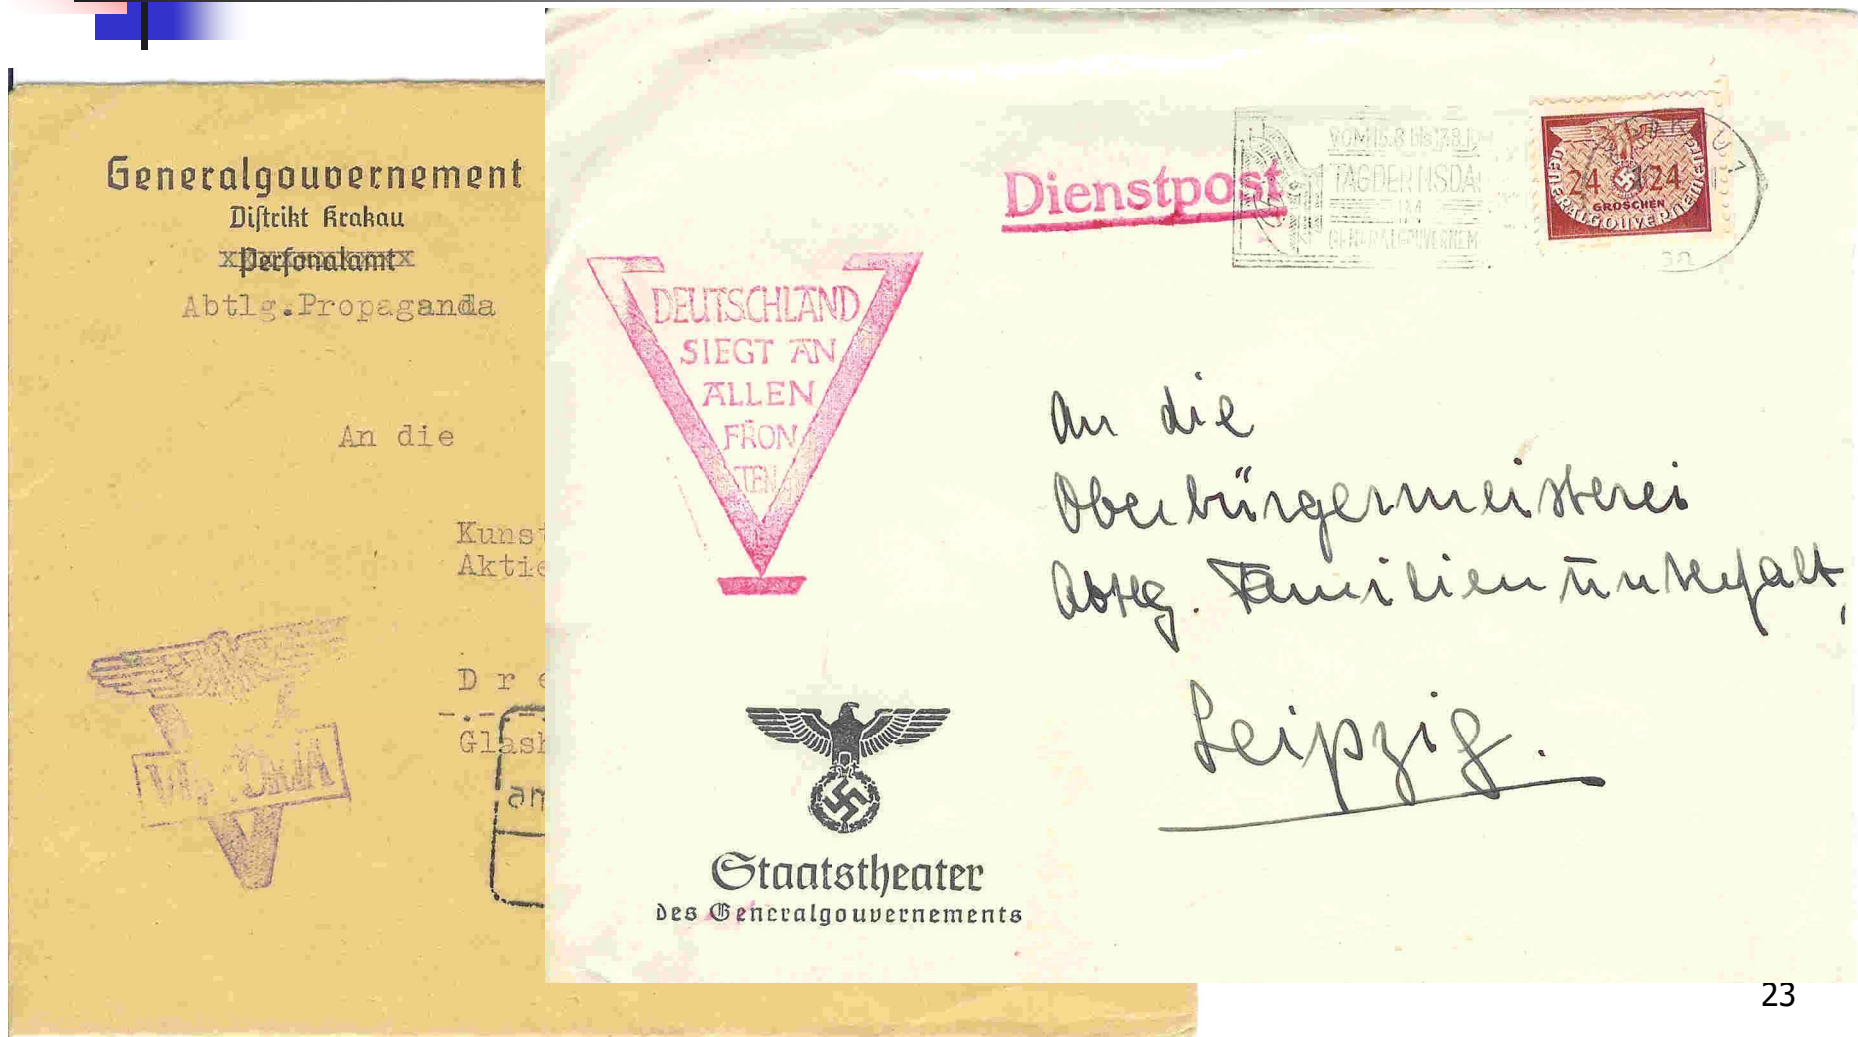 Generalgouvernement
Distrikt Krakau
Personalamt
Abtlg.Propaganda
An die
Kunst
Aktie
D r e
Glash
an
VICTORIA
Dienstpost
VOM 15.8 bis 17.8.
TAG DER NSDA
IM
GENERALGOUVERNEM
24 24
GROSCHEN
GENERALGOUVERNEMENT
DEUTSCHLAND
SIEGT AN
ALLEN
FRON
TEN
An die
Oberbürgermeisterei
Abtlg. Familienunterhalt,
Leipzig.
Staatstheater
des Generalgouvernements
23